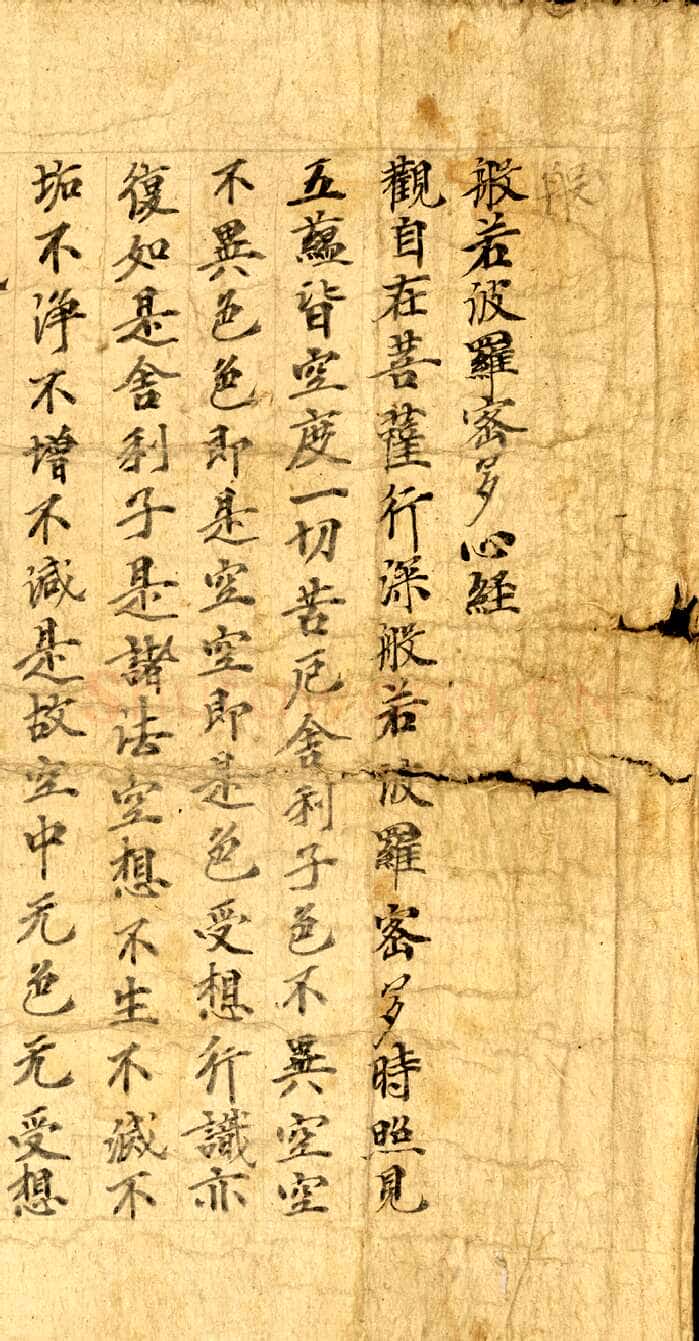 般
般若波羅密多心経
觀自在菩薩行深般若波羅密多時照見
五蘊皆空度一切苦厄舍利子色不異空空
不異色色即是空空即是色受想行識亦
復如是舍利子是諸法空想不生不滅不
垢不淨不增不減是故空中无色无受想